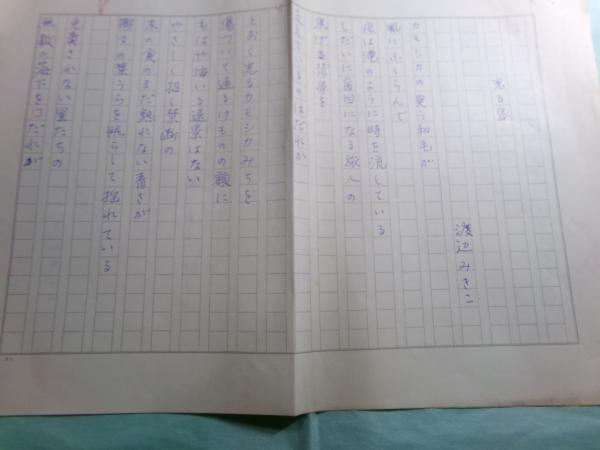 光る馬
渡辺みきこ
カモシカの黄う和毛が
風にふくらんで
夜は滝のように時を流している
しだいに盲目になる旅人の
焦げる
ているのはだれか
とおく光るカモシカみちを
傷ついて通るけものの額に
もはや悔いる遠景はない
やさしく招く禁断の
木の実のまだ熟れない青さが
樹々の葉うらを照らして揺れている
免責されない星たちの
無数の落下をコだれが